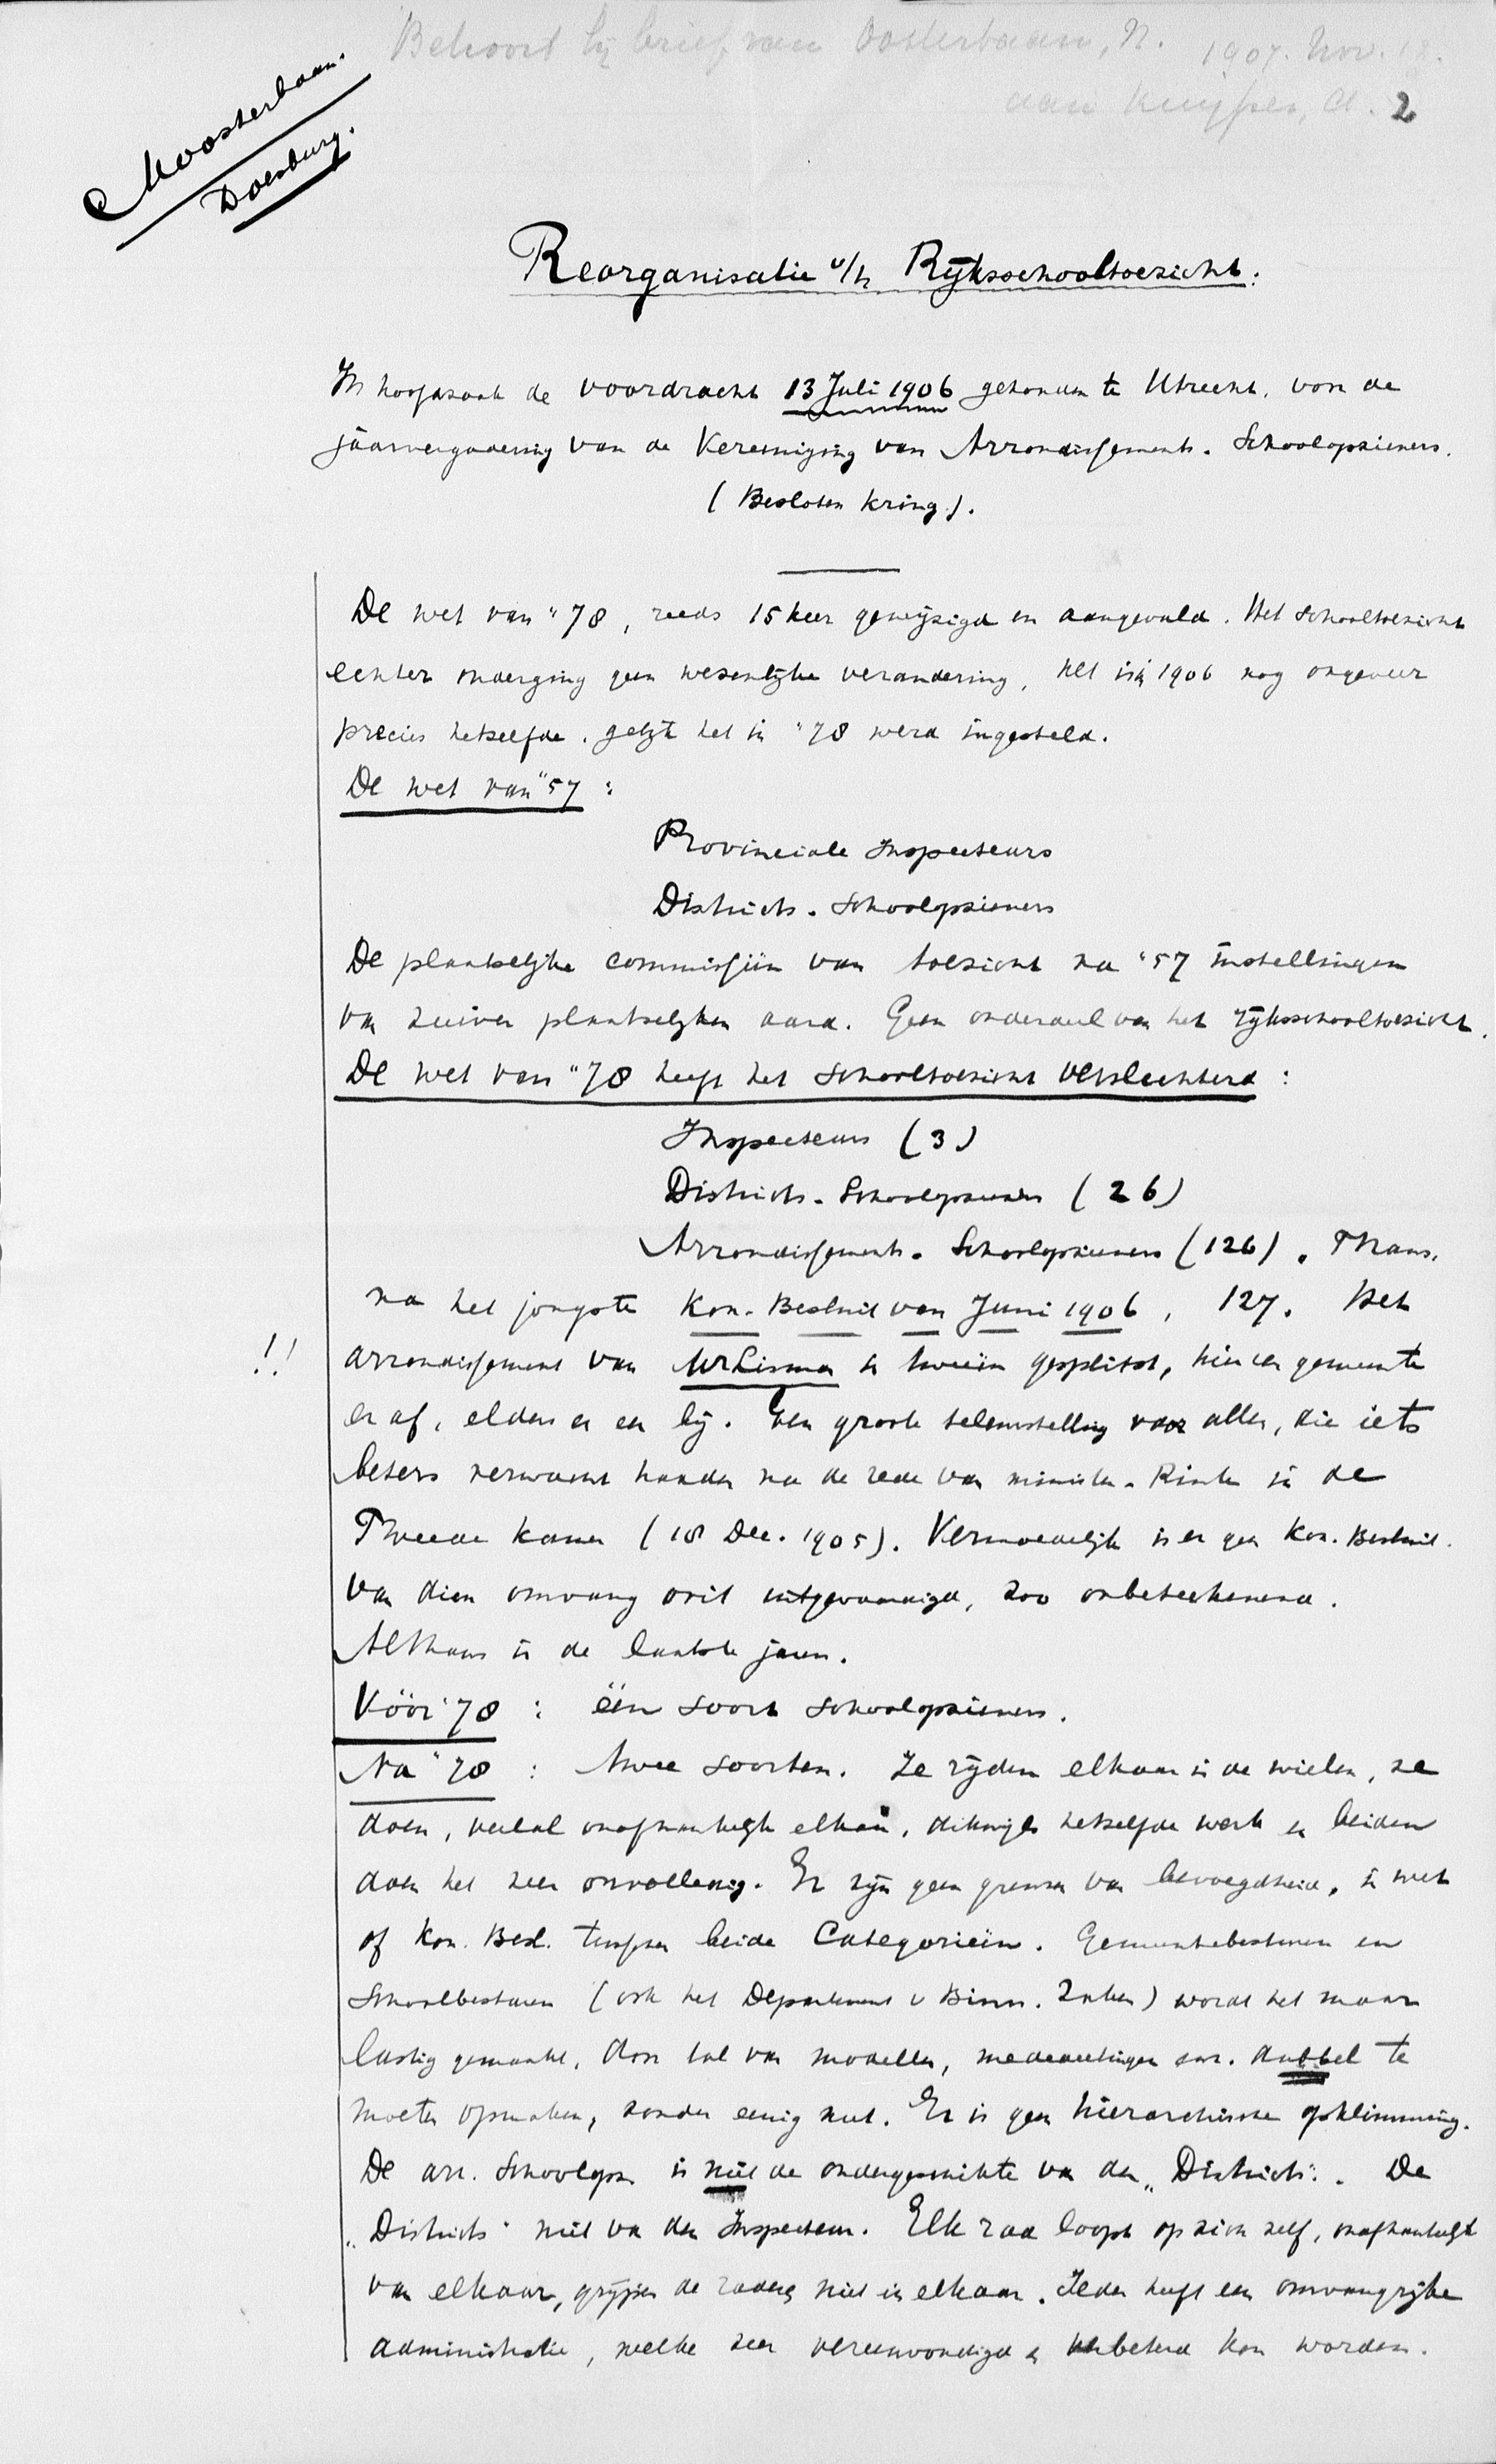 Behoort bij brief van Oosterbaan, N. 1907. Nov. 18.
aan Kuyper, A. 2
Noosterbaan.
Doesburg.
Reorganisatie v/h Rijksschooltoezicht.
In hoofdzaak de voordracht 13 Juli 1906 gehouden te Utrecht, voor de
jaarvergadering van de Vereeniging van Arrondissements-Schoolopzieners.
(Besloten kring).
De wet van "78, reeds 15 keer gewijzigd en aangevuld. Het schooltoezicht
echter onderging geen wezenlijke verandering, het is in 1906 nog ongeveer
precies hetzelfde, gelijk het in "78 werd ingesteld.
De wet van "57 :
Provinciale Inspecteurs
Districts-Schoolopzieners
De plaatselijke commissiën van toezicht na "57 instellingen
van zuiver plaatselijken aard. Geen onderdeel van het rijksschooltoezicht.
De wet van "78 heeft het schooltoezicht verslechterd :
Inspecteurs (3)
Districts-Schoolopzieners (26)
Arrondissements-Schoolopzieners (126). Thans,
na het jongste Kon. Besluit van Juni 1906, 127. Het
!! arrondissement van is in tweeën gesplitst, hier een gemeente
er af, elders er een bij. Een groote teleurstelling voor allen, die iets
beters verwacht hadden na de rede van minister Rink in de
Tweede Kamer (18 Dec. 1905). Vermoedelijk is er geen Kon. Besluit
van dien omvang ooit uitgevaardigd, zoo onbeteekenend.
Althans in de laatste jaren.
Vóór "78 : één soort schoolopzieners.
Na "78 : twee soorten. Ze rijden elkaar in de wielen, ze
doen, veelal onafhankelijk elkaar, dikwijls hetzelfde werk en beiden
doen het zeer onvolledig. Er zijn geen grenzen van bevoegdheid, in wet
of Kon. Besl. tusschen beide Categorieën. Gemeentebesturen en
Schoolbesturen (ook het Departement v Binn. Zaken) wordt het maar
lastig gemaakt, door tal van modellen, mededeelingen enz. dubbel te
moeten opmaken, zonder eenig nut. Er is geen hierarchische opklimming.
De arr. Schoolopz. is niet de ondergeschikte van den "Districts". De
"Districts" niet van den Inspecteur. Elk rad loopt op zich zelf, onafhankelijk
van elkaar, grijpen de raderen niet in elkaar. Ieder heeft een omvangrijke
administratie, welke zeer vereenvoudigd en verbeterd kon worden.